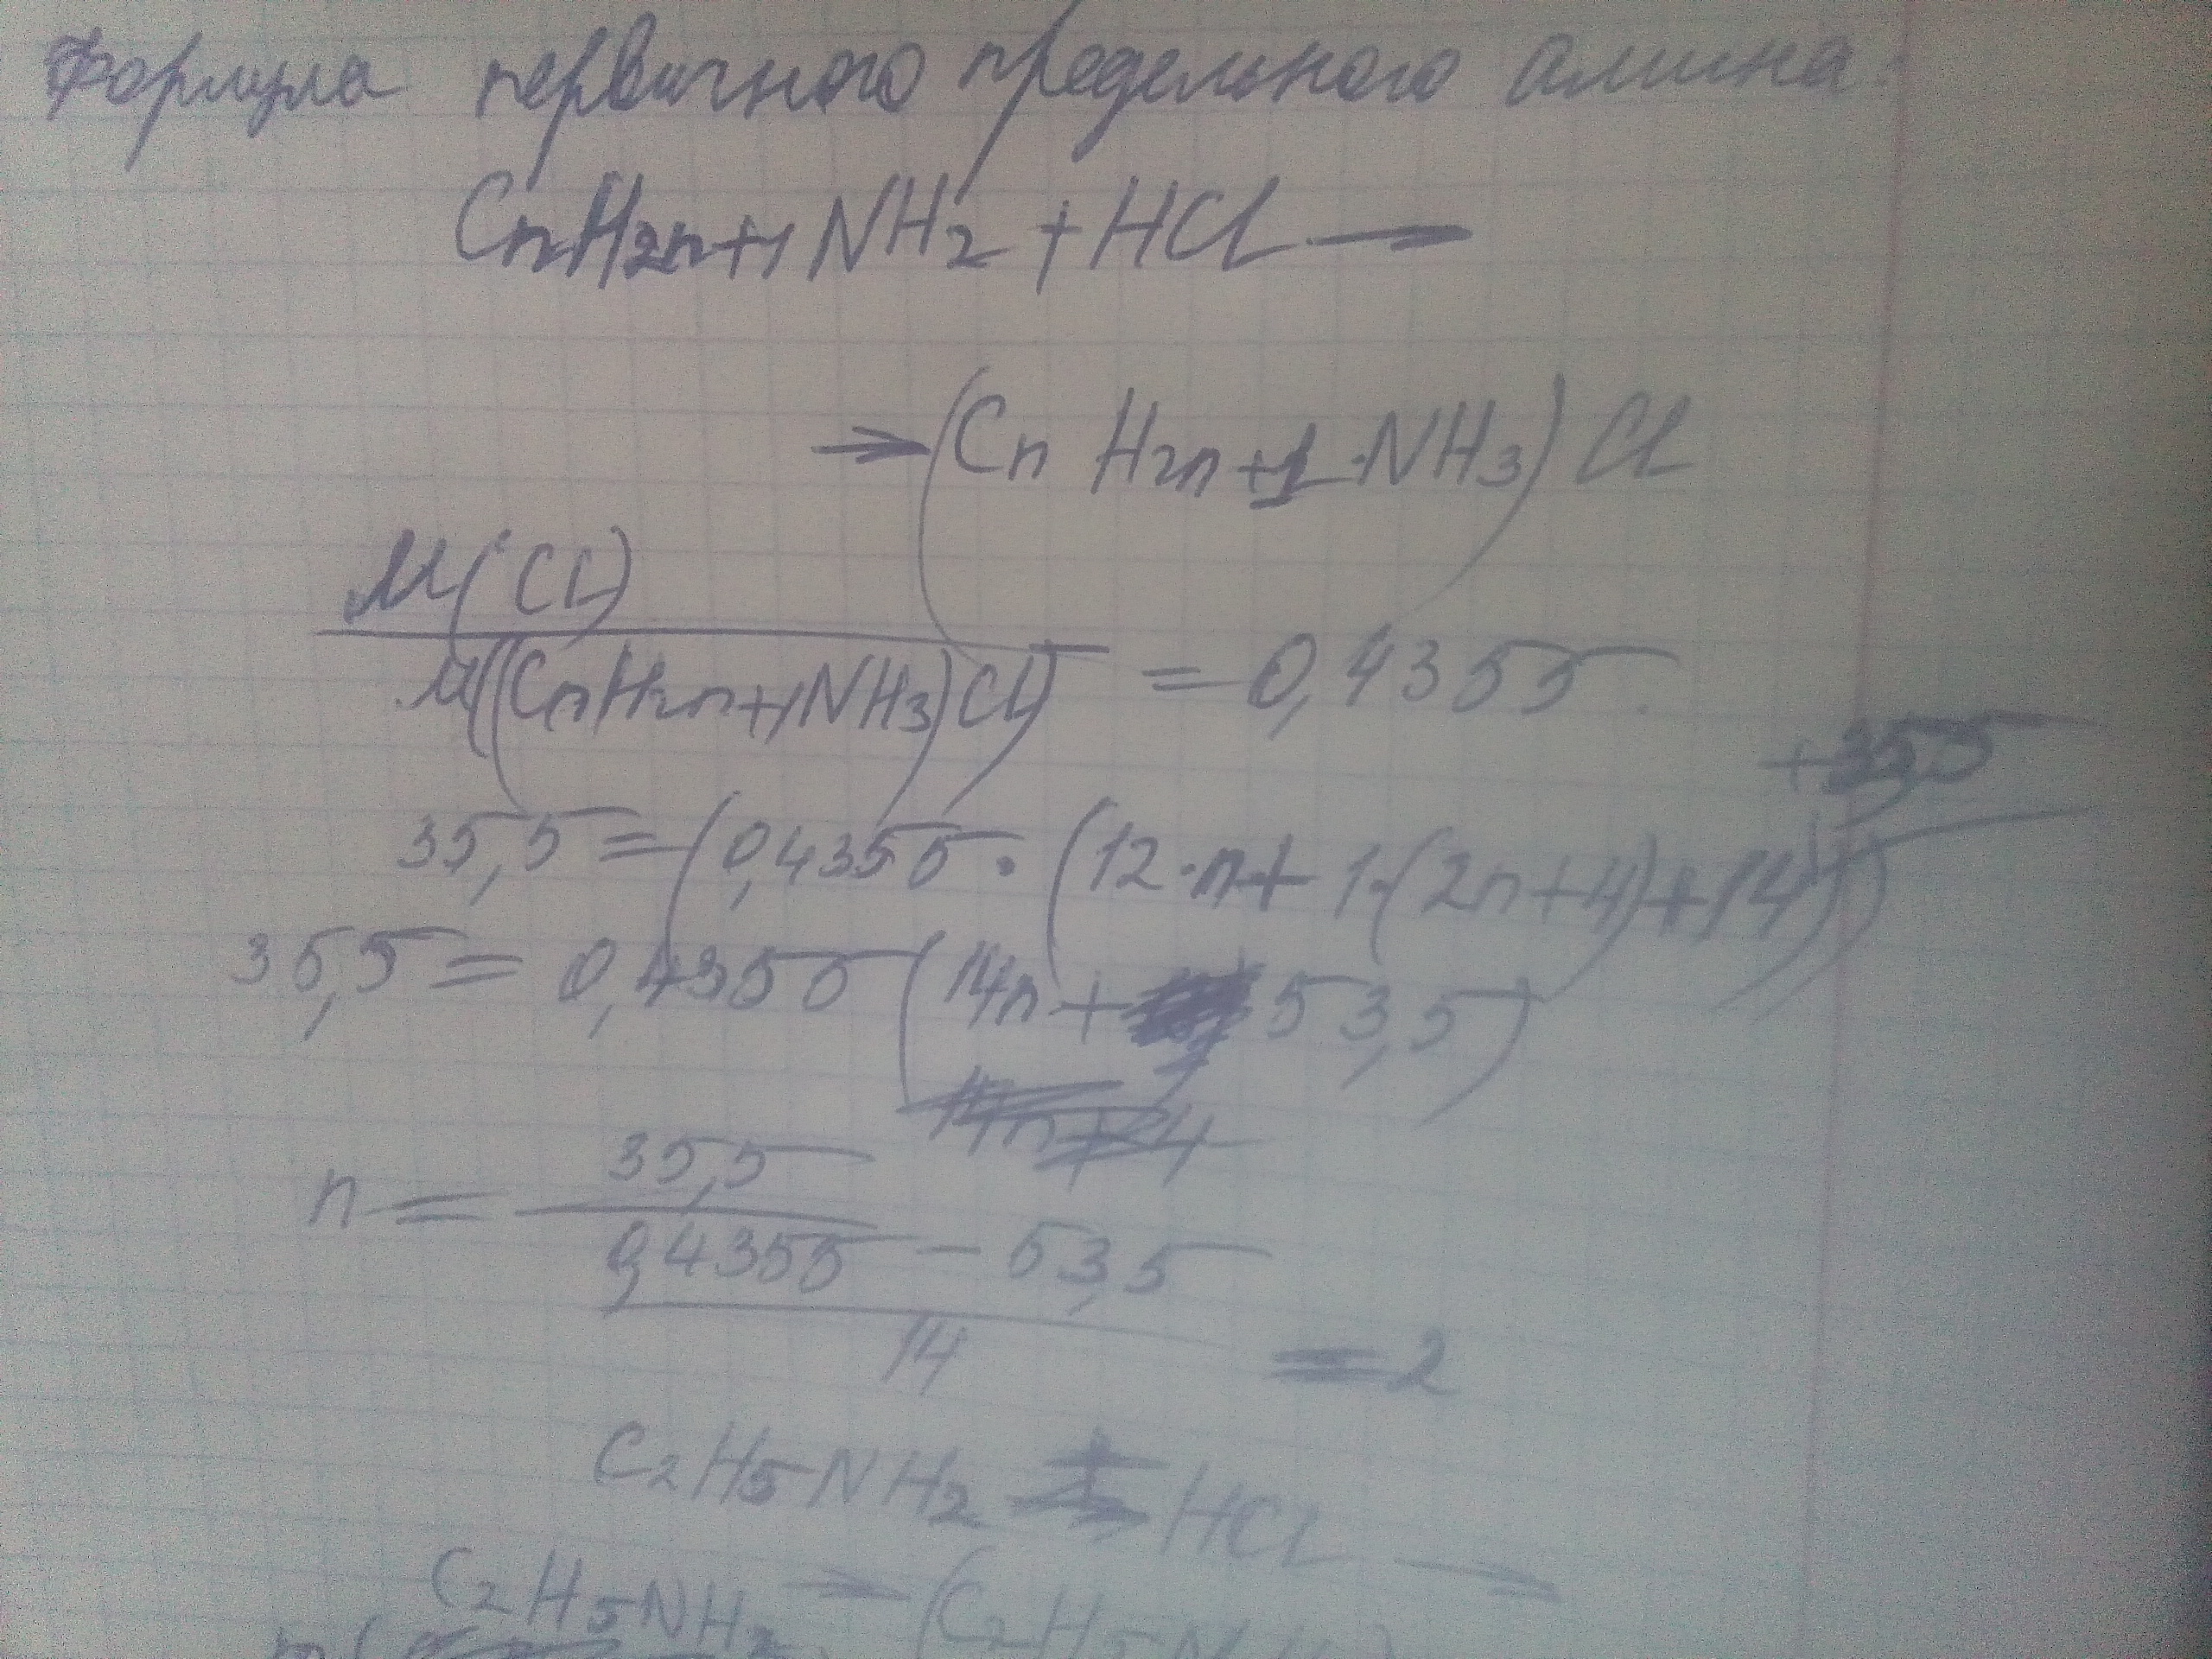 Формула первичного предельного амина:
CnH2n+1NH2 + HCl →
→ (CnH2n+1NH3)Cl
M(Cl)
M((CnH2n+1NH3)Cl) = 0,4355.
+35,5
35,5 = (0,4355 · (12·n + 1·(2n+4) + 14))
35,5 = 0,4355 (14n + 53,5)
14n+4
n = 35,5
0,4355 - 53,5
14 = 2
C2H5NH2 + HCl →
C2H5NH2 → (C2H5N